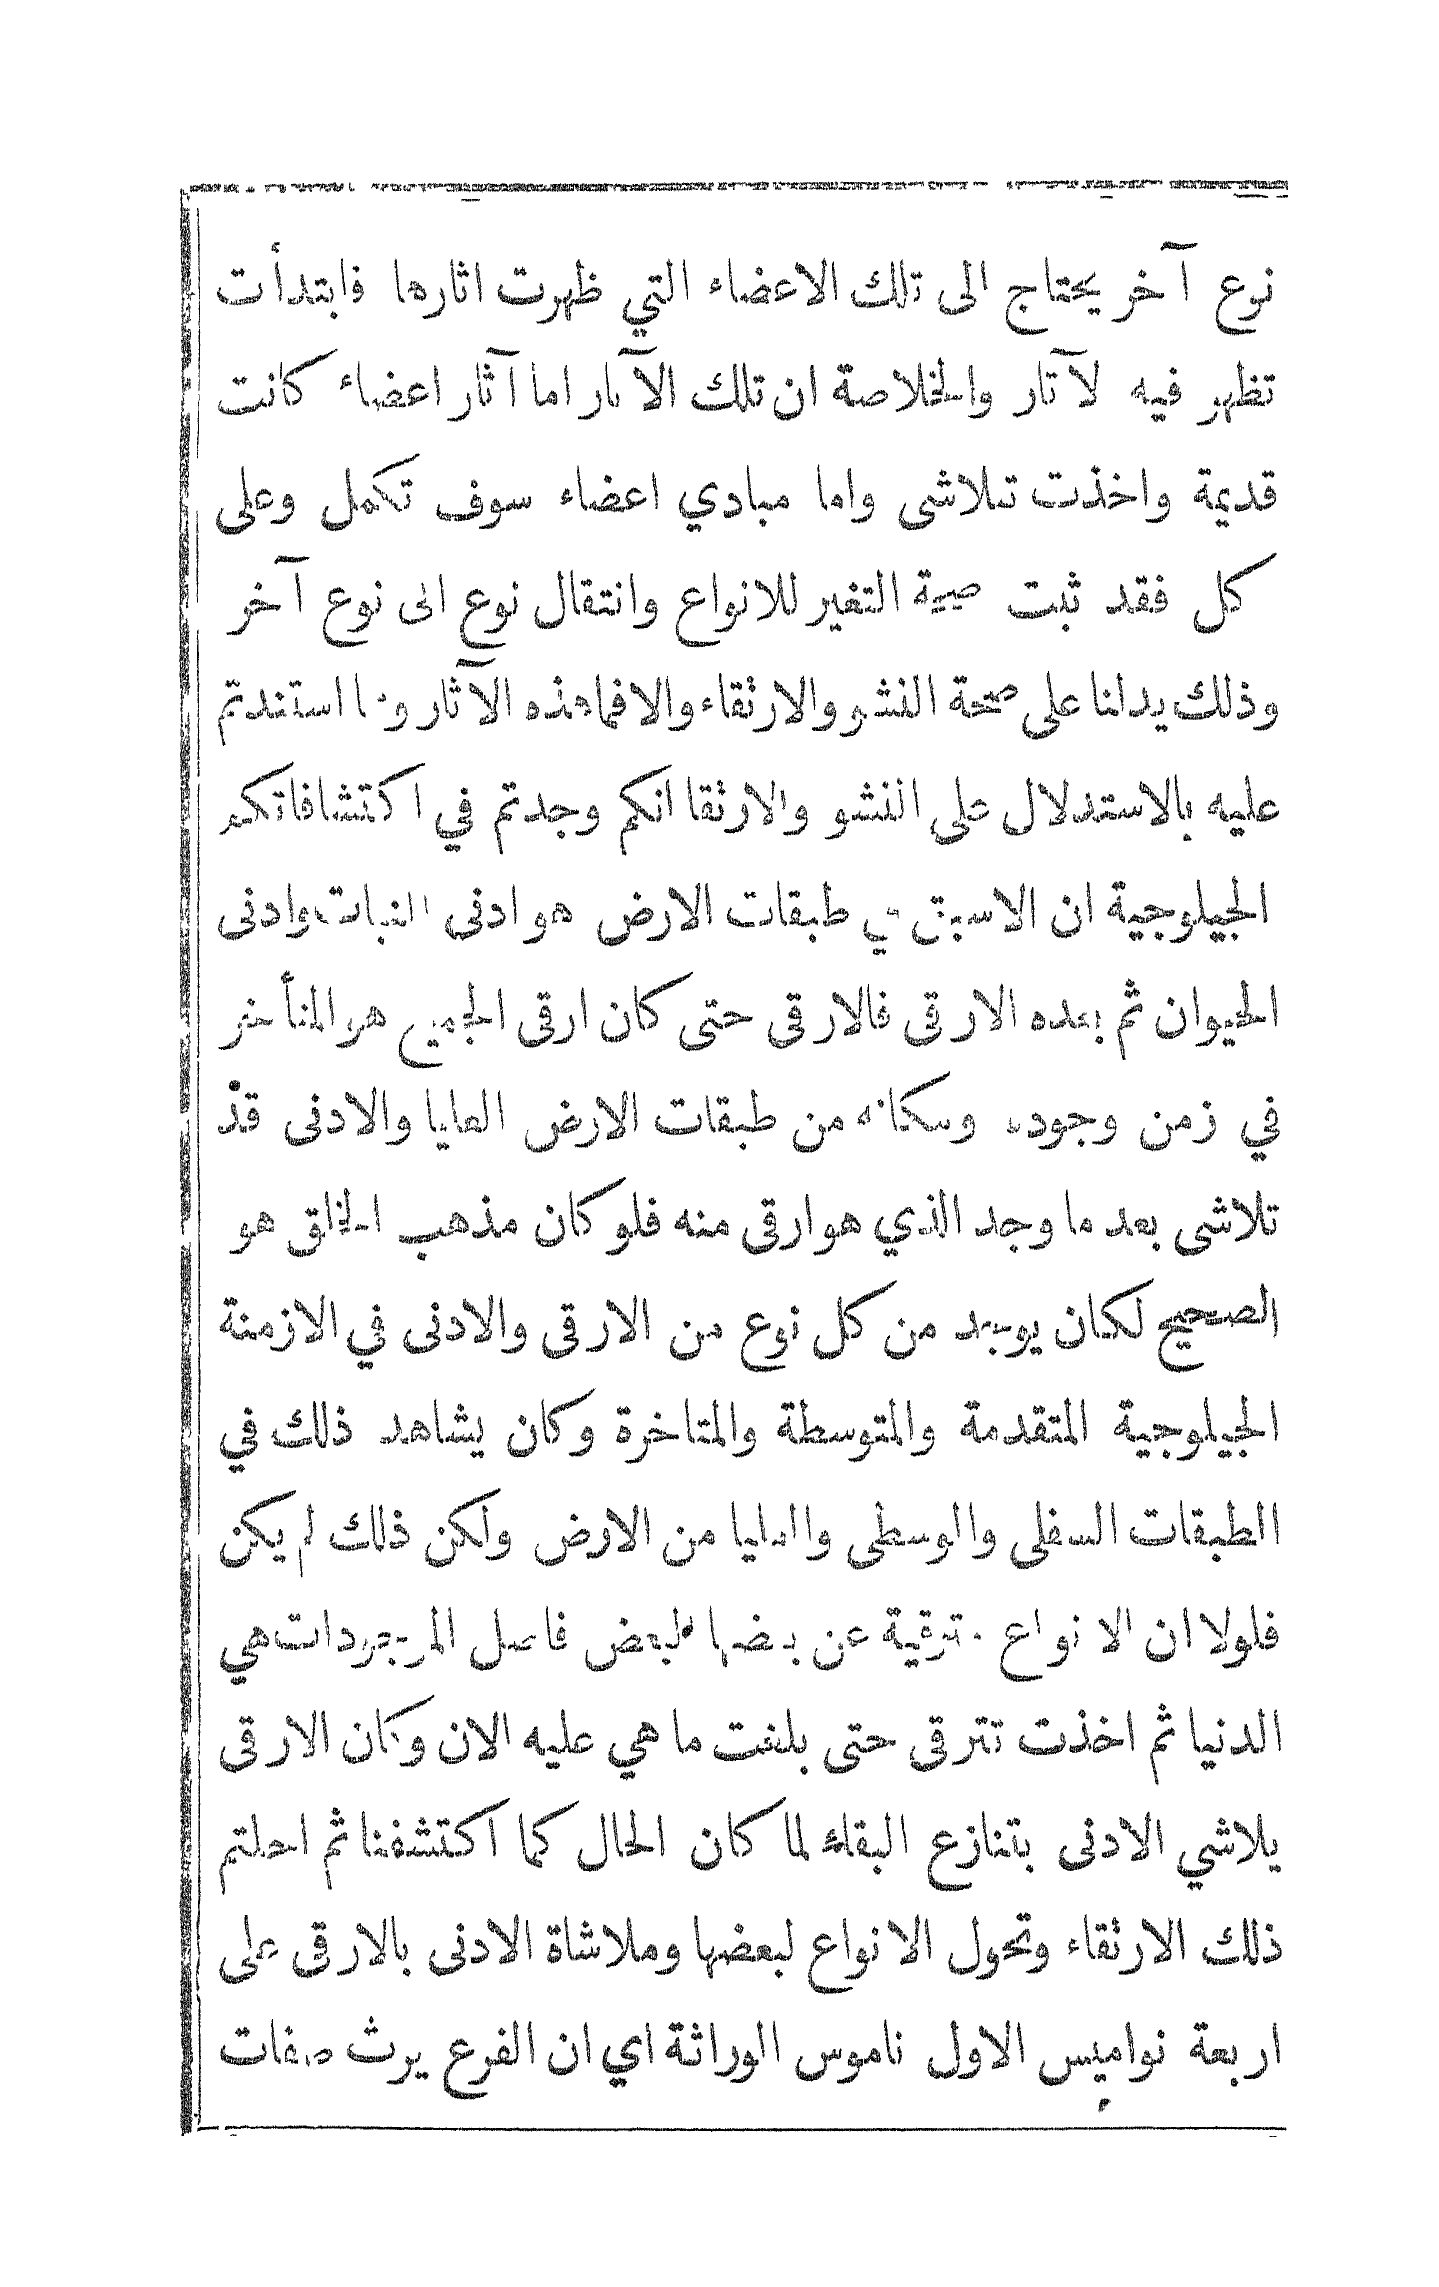 نوع آخر يحتاج الى تلك الاعضاء التي ظهرت اثارها فابتدأت
تظهر فيه لآثار والخلاصة ان تلك الآثار اما آثار اعضاء كانت
قديمة واخذت تتلاشى واما مبادي اعضاء سوف تكمل وعلى
كل فقد ثبت صحة التغير للانواع وانتقال نوع الى نوع آخر
وذلك يدلنا على صحة النشو والارتقاء والا فما هذه الآثار ومما استندتم
عليه بالاستدلال على النشو والارتقا انكم وجدتم في اكتشافاتكم
الجيلوجية ان الاسبق في طبقات الارض هو ادنى النبات وادنى
الحيوان ثم بعده الارقى فالارقى حتى كان ارقى الجميع هو المتأخر
في زمن وجوده ومكانه من طبقات الارض العليا والادنى قد
تلاشى بعد ما وجد الذي هو ارقى منه فلو كان مذهب الخلق هو
الصحيح لكان يوجد من كل نوع من الارقى والادنى في الازمنة
الجيلوجية المتقدمة والمتوسطة والمتاخرة وكان يشاهد ذلك في
الطبقات السفلى والوسطى والعليا من الارض ولكن ذلك لم يكن
فلولا ان الانواع مترقية عن بعضها لبعض فاصل الموجودات هي
الدنيا ثم اخذت تترقى حتى بلغت ما هي عليه الان وكان الارقى
يلاشي الادنى بتنازع البقاء لما كان الحال كما اكتشفنا ثم احلتم
ذلك الارتقاء وتحول الانواع لبعضها وملاشاة الادنى بالارقى على
اربعة نواميس الاول ناموس الوراثة اي ان الفرع يرث صفات